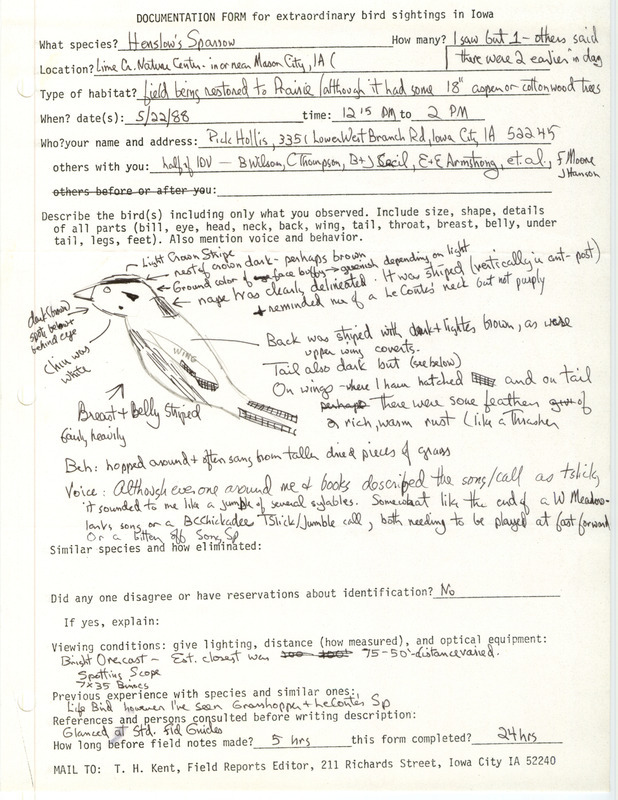 DOCUMENTATION FORM for extraordinary bird sightings in Iowa
What species? Henslow's Sparrow How many? I saw but 1 - others said
there were 2 earlier in day
Location? Lime Cr. Nature Center - in or near Mason City, IA (
Type of habitat? field being restored to Prairie (although it had some 18" aspen or cottonwood trees
When? date(s): 5/22/88 time: 12 15 PM to 2 PM
Who? your name and address: Rick Hollis, 3351 Lower West Branch Rd, Iowa City, IA 52245
others with you: half of IOU - B Wilson, C Thompson, B+J Cecil, E+E Armstrong, et. al., F Moore
J Hanson
others before or after you:
Describe the bird(s) including only what you observed. Include size, shape, details
of all parts (bill, eye, head, neck, back, wing, tail, throat, breast, belly, under
tail, legs, feet). Also mention voice and behavior.
Light Crown Stripe
rest of crown dark - perhaps brown
Ground color of face buffy → greenish depending on light
nape was clearly delineated. It was striped (vertically in ant - post)
+ reminded me of a LeConte's neck but not purply
dark (brown) spots below + behind eye
chin was white
Back was striped with dark + lighter brown, as were
upper wing coverts.
WING
Tail also dark but (see below)
On wings - where I have hatched and on tail
there were some feathers of
a rich, warm rust (like a Thrasher
Breast + Belly Striped
fairly heavily
Beh: hopped around + often sang from taller dried pieces of grass
Voice: Although everyone around me + books described the song/call as tslick,
it sounded to me like a jumble of several sylables. Somewhat like the end of a W Meadow-
larks song or a BCChickadee TSlick/Jumble call, both needing to be played at fast forward
Or a bitten off Song Sp
Similar species and how eliminated:
Did any one disagree or have reservations about identification? No
If yes, explain:
Viewing conditions: give lighting, distance (how measured), and optical equipment:
Bright Overcast - Est. closest was 75-50' - distance varied.
Spotting Scope
7x35 Binocs
Previous experience with species and similar ones:
Life Bird however I've seen Grasshopper + LeContes Sp
References and persons consulted before writing description:
Glanced at Std. Fld Guides
How long before field notes made? 5 hrs this form completed? 24 hrs
MAIL TO: T. H. Kent, Field Reports Editor, 211 Richards Street, Iowa City IA 52240